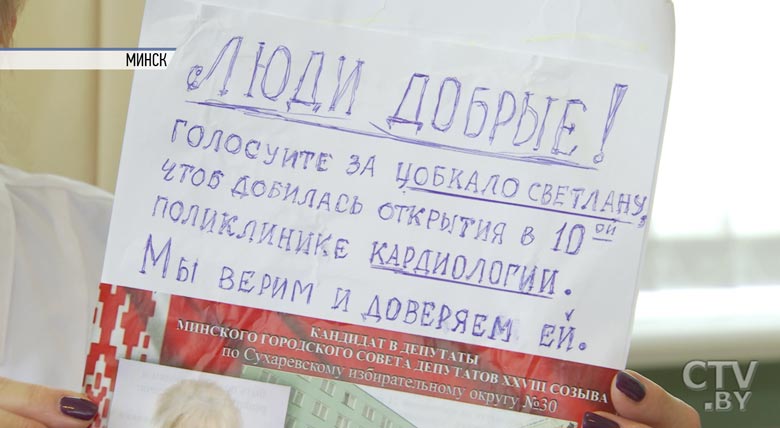 МИНСК
ЛЮДИ ДОБРЫЕ!
ГОЛОСУЙТЕ ЗА ЦОБКАЛО СВЕТЛАНУ,
ЧТОБ ДОБИЛАСЬ ОТКРЫТИЯ В 10ОЙ
ПОЛИКЛИНИКЕ КАРДИОЛОГИИ.
МЫ ВЕРИМ И ДОВЕРЯЕМ ЕЙ.
КАНДИДАТ В ДЕПУТАТЫ
МИНСКОГО ГОРОДСКОГО СОВЕТА ДЕПУТАТОВ XXVIII СОЗЫВА
по Сухаревскому избирательному округу №30
CTV
.BY